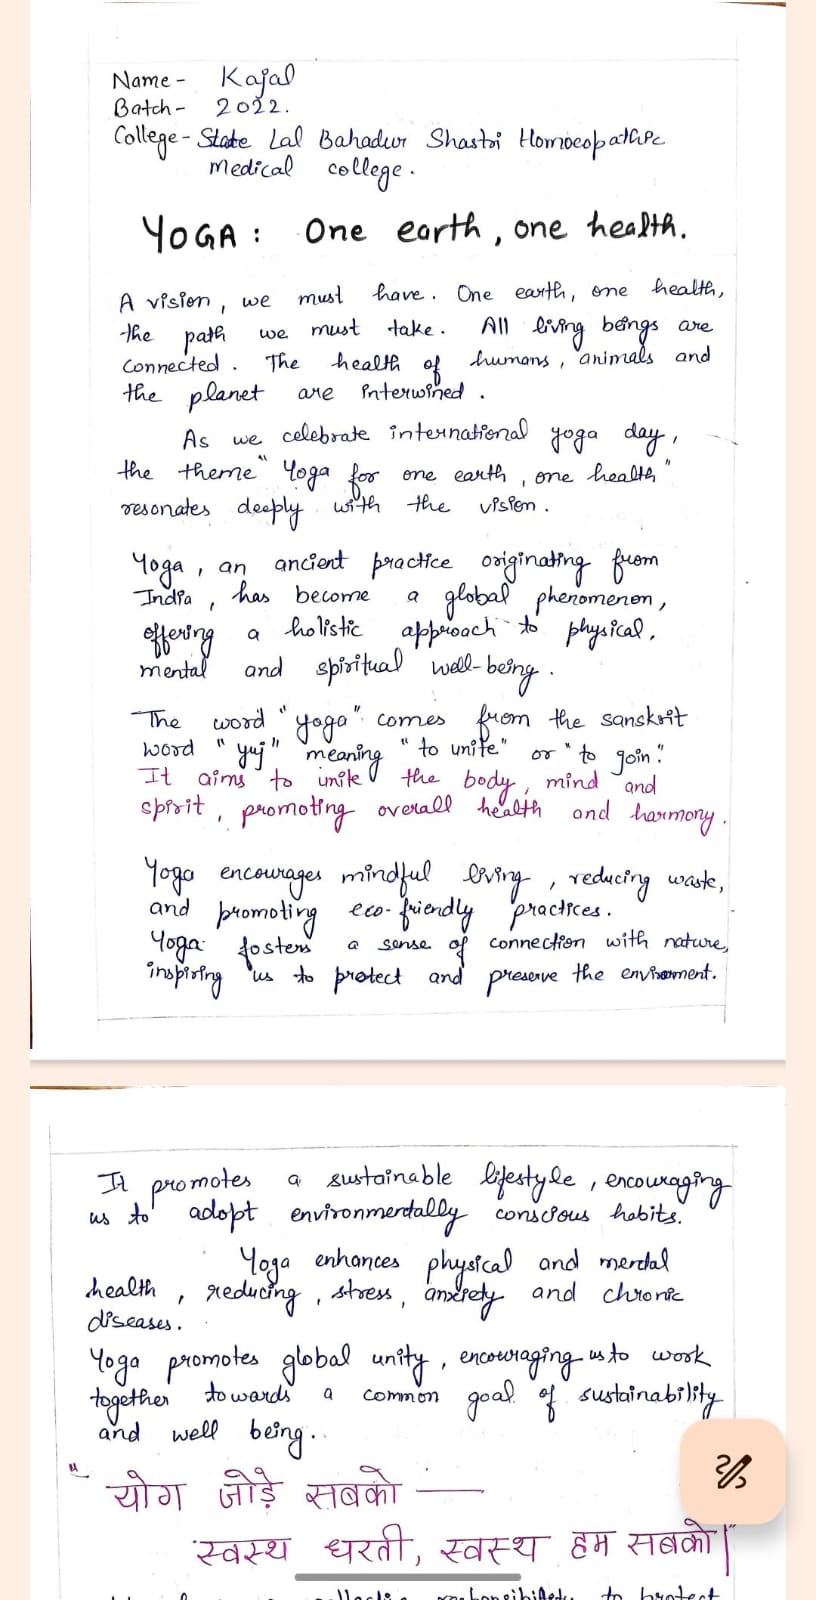 Name - Kajal
Batch - 2022.
College - State Lal Bahadur Shastri Homoeopathic
Medical college.
YOGA : One earth, one health.
A vision, we must have. One earth, one health,
the path we must take. All living beings are
connected. The health of humans, animals and
the planet are interwined.
As we celebrate international yoga day,
the theme "Yoga for one earth, one health"
resonates deeply with the vision.
Yoga, an ancient practice originating from
India, has become a global phenomenon,
offering a holistic approach to physical,
mental and spiritual well-being.
The word "yoga" comes from the sanskrit
word "yuj" meaning "to unite" or "to join".
It aims to unite the body, mind and
spirit, promoting overall health and harmony.
Yoga encourages mindful living, reducing waste,
and promoting eco-friendly practices.
Yoga fosters a sense of connection with nature,
inspiring us to protect and preserve the environment.
It promotes a sustainable lifestyle, encouraging
us to adopt environmentally conscious habits.
Yoga enhances physical and mental
health, reducing, stress, anxiety and chronic
diseases.
Yoga promotes global unity, encouraging us to work
together towards a common goal of sustainability
and well being.
"योग जोड़े सबको —
स्वस्थ धरती, स्वस्थ हम सबको|"
to protect